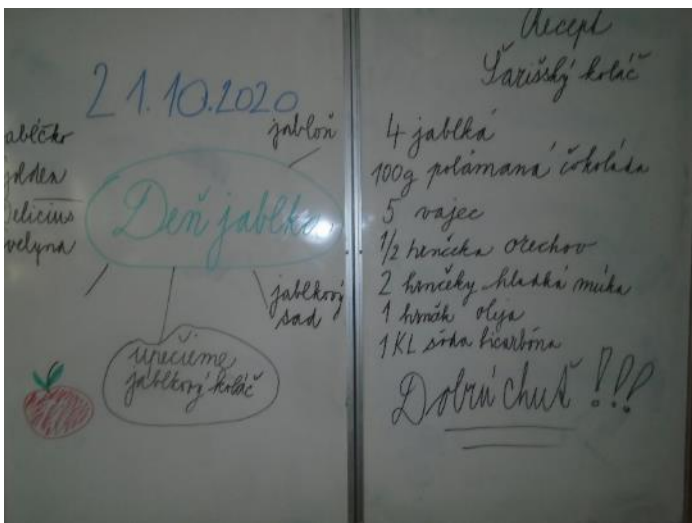 21.10.2020
jabloň
Golden
Delicius
Evelyna
Deň jablka
jablkový
sad
upečieme
jablkový koláč
Recept
Šarišský koláč
4 jablká
100g polámaná čokoláda
5 vajec
1/2 hrnčeka orechov
2 hrnčeky hladká múka
1 hrnček oleja
1 KL sóda bicarbóna
Dobrú chuť !!!